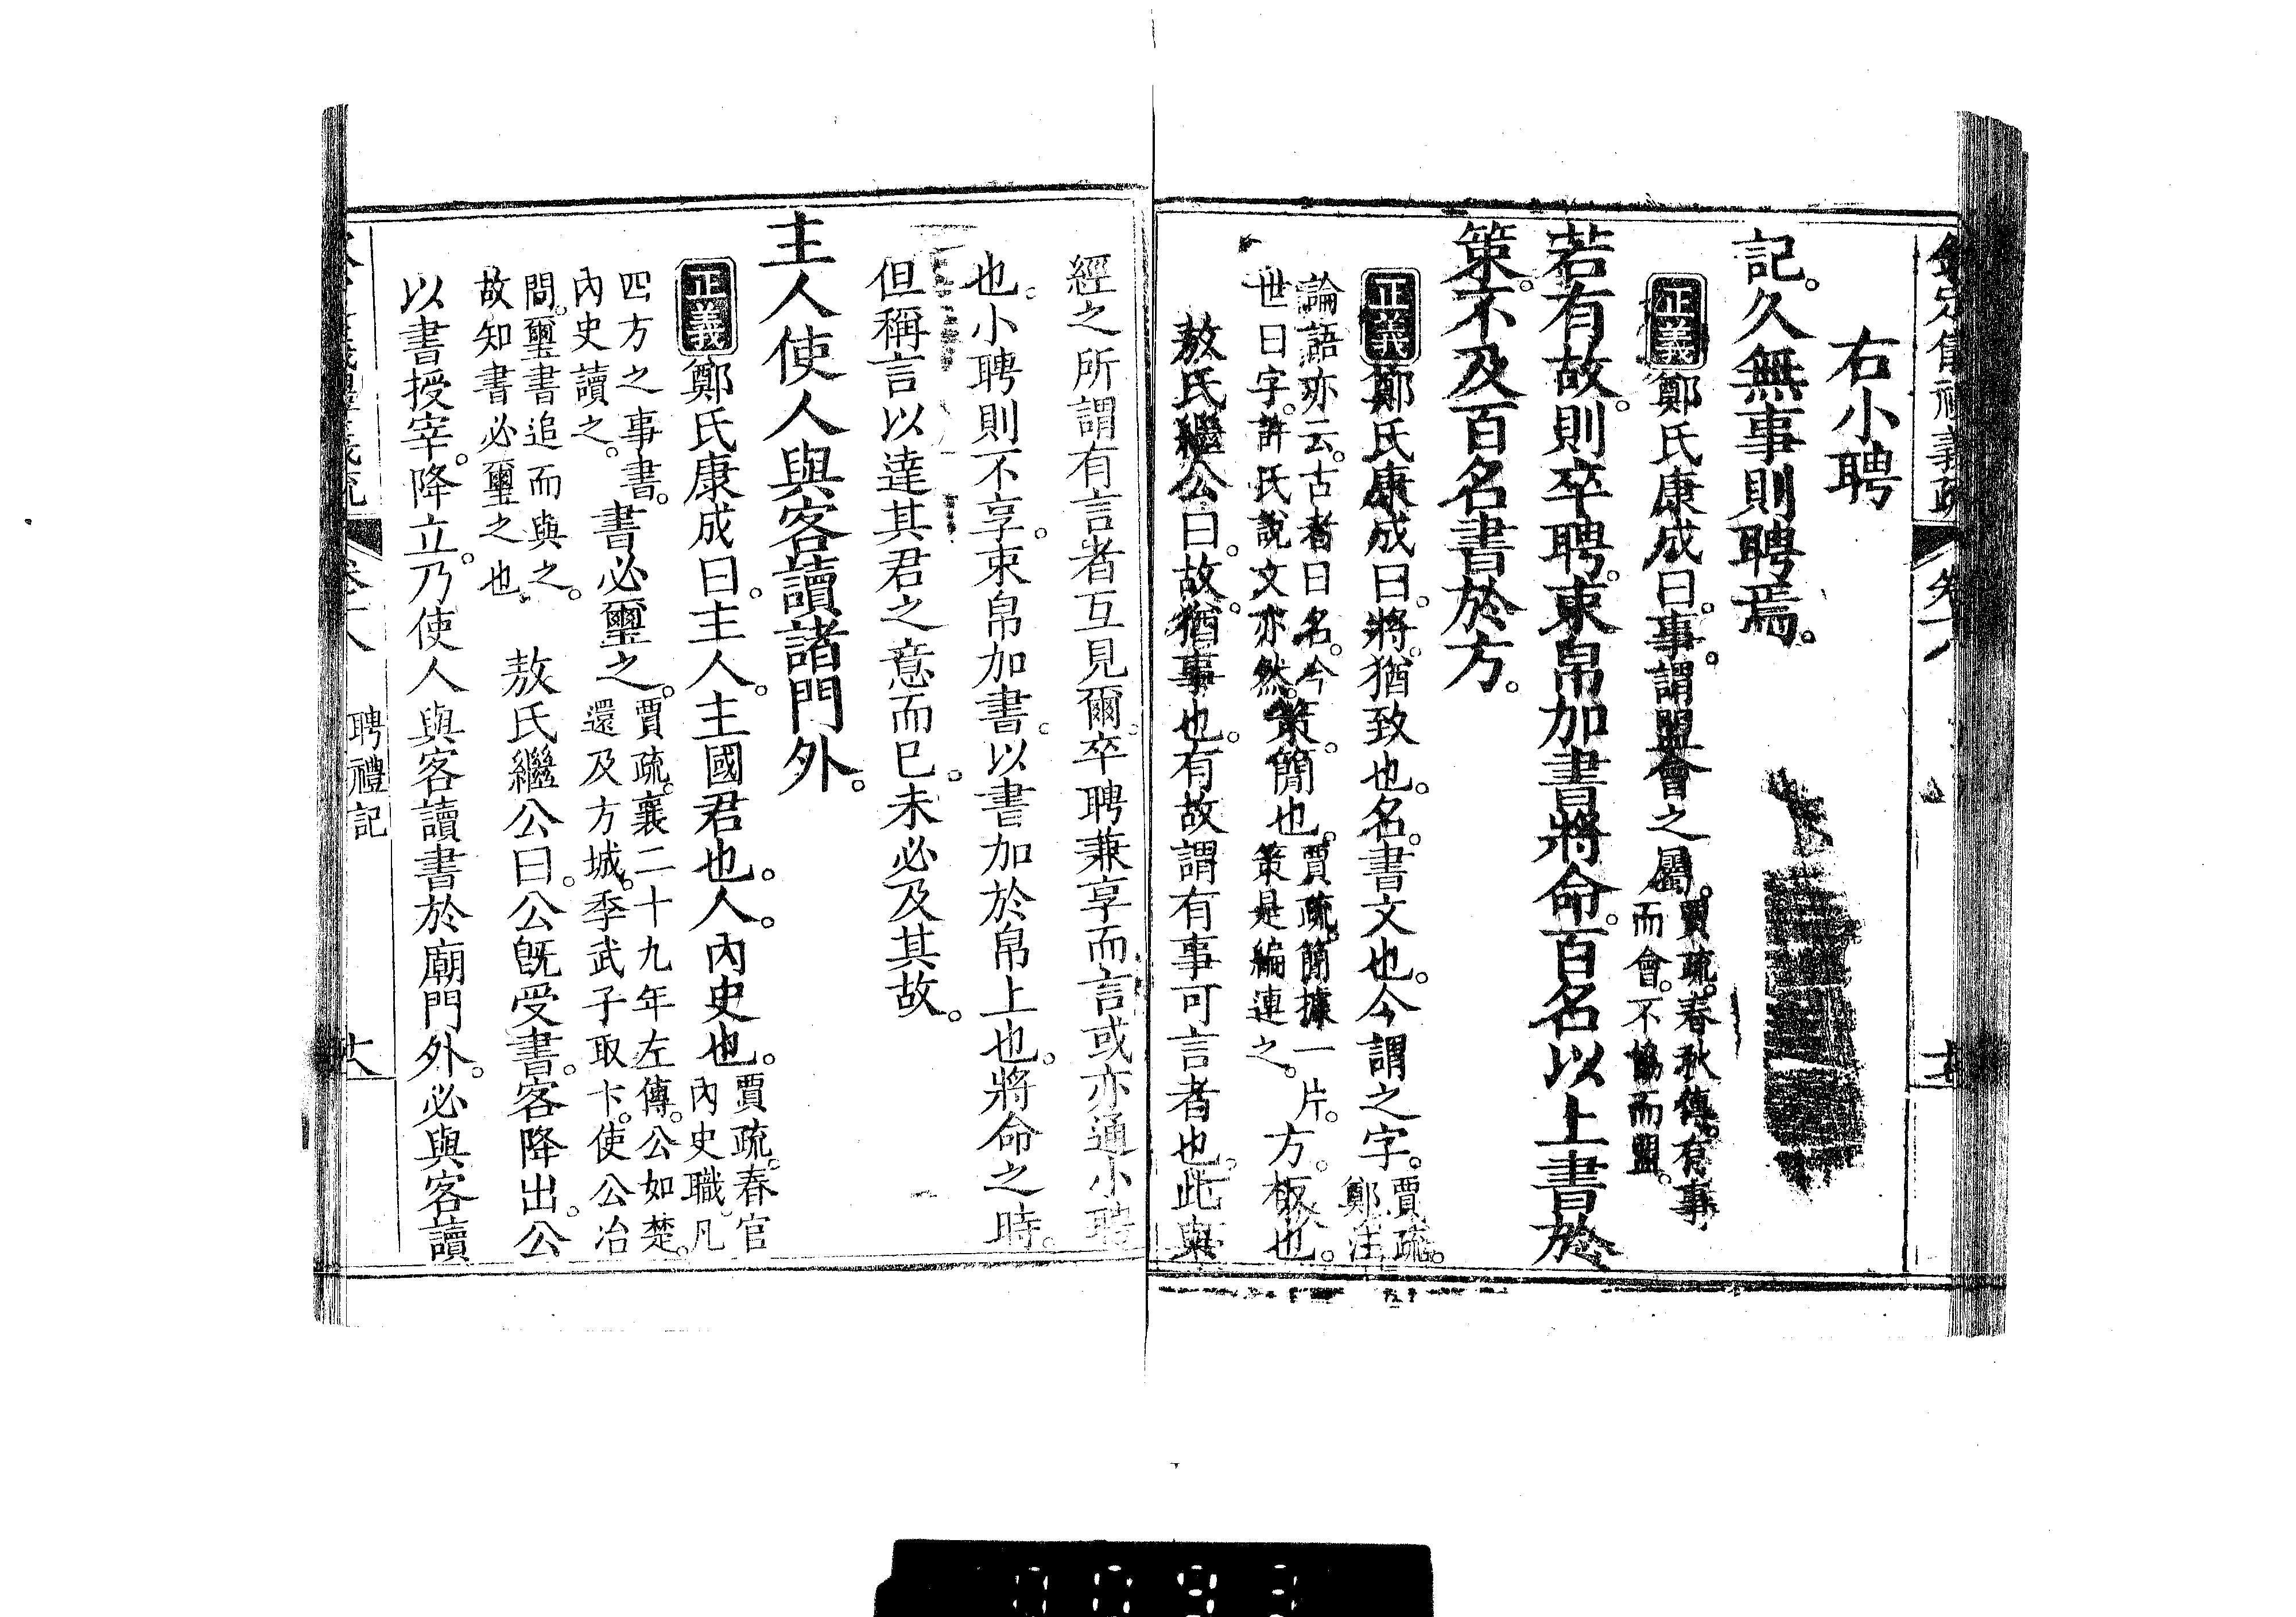 右小聘
記。久無事則聘焉。
正義鄭氏康成曰。事謂盟會之屬。賈疏。春秋傳。有事
而會。不協而盟。
若有故。則卒聘。束帛加書將命。百名以上書於
策。不及百名書於方。
正義鄭氏康成曰。將。猶致也。名。書文也。今謂之字。賈疏。
鄭注
論語亦云。古者曰名。今
世曰字。許氏說文亦然。策。簡也。賈疏。簡據一片。
策是編連之。方。板也。
敖氏繼公曰。故。猶事也。有故謂有事可言者也。此與
經之所謂有言者互見爾。卒聘兼享而言或亦通小聘
也。小聘則不享。束帛加書。以書加於帛上也。將命之時。
但稱言以達其君之意而已。未必及其故。
主人使人與客讀諸門外。
正義鄭氏康成曰。主人。主國君也。人。內史也。賈疏。春官
內史職。凡
四方之事書。
內史讀之。書必璽之。賈疏。襄二十九年左傳。公如楚。
還及方城。季武子取卞。使公冶
問。璽書追而與之。
故知書必璽之也。敖氏繼公曰。公既受書。客降出。公
以書授宰。降立。乃使人與客讀書於廟門外。必與客讀
聘禮記